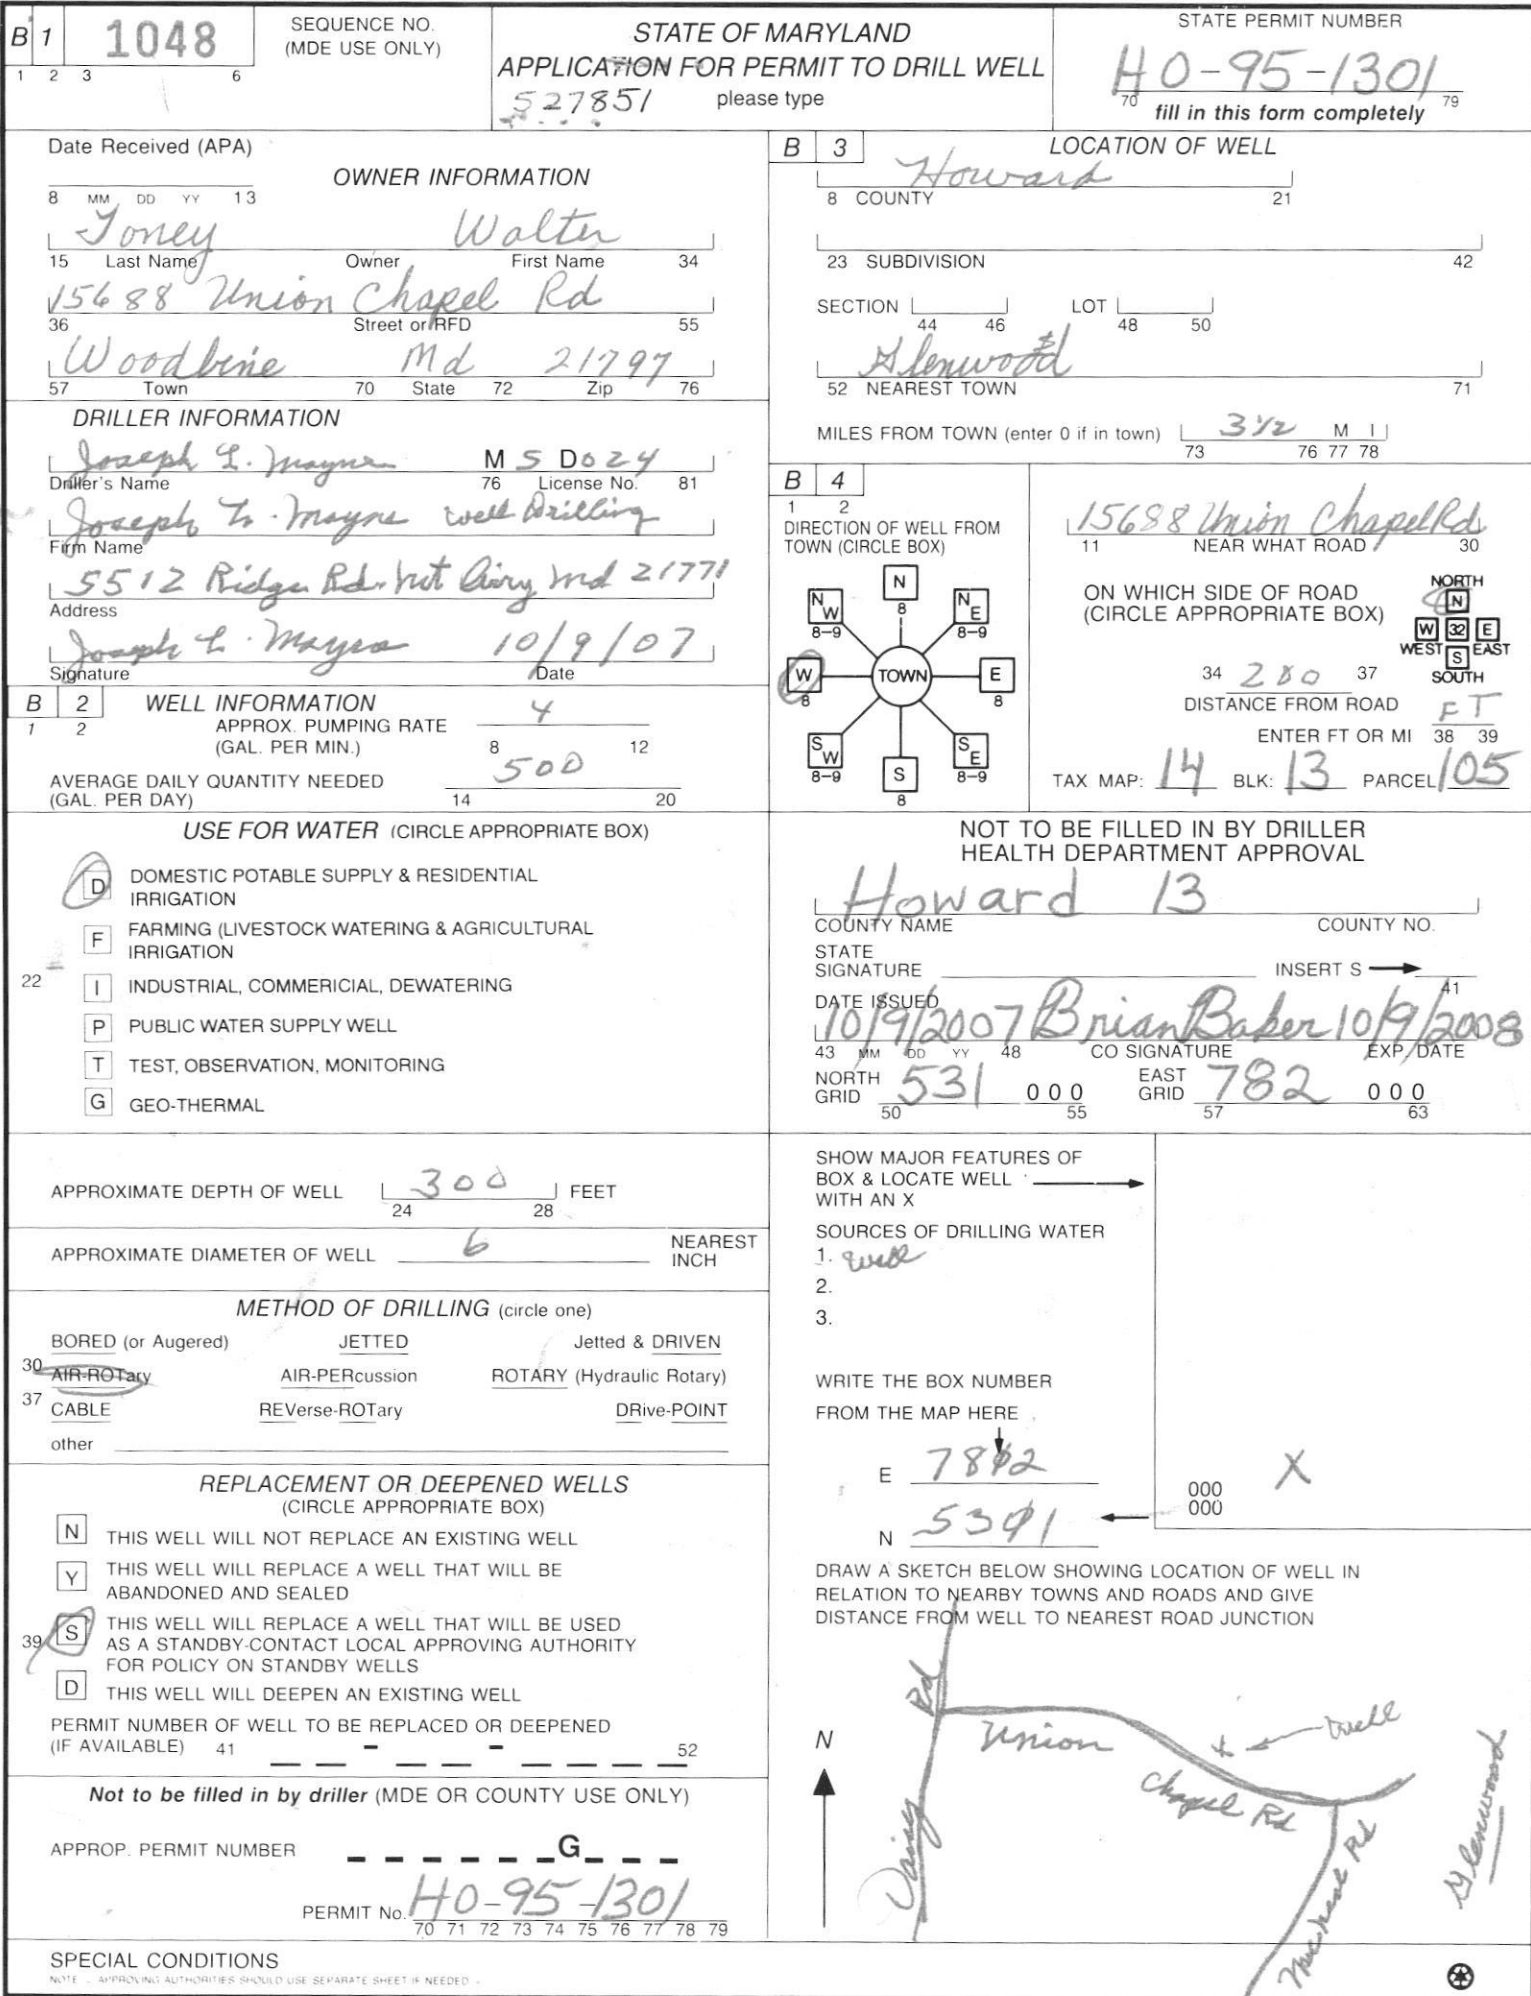 B 1 1048
1 2 3 6
SEQUENCE NO.
(MDE USE ONLY)
STATE OF MARYLAND
APPLICATION FOR PERMIT TO DRILL WELL
527851 please type
STATE PERMIT NUMBER
HO-95-1301
70 79
fill in this form completely
Date Received (APA)
8 MM DD YY 13
OWNER INFORMATION
Toney Walter
15 Last Name Owner First Name 34
15688 Union Chapel Rd
36 Street or RFD 55
Woodbine Md 21797
57 Town 70 State 72 Zip 76
DRILLER INFORMATION
Joseph L. Mayne M S D 024
Driller's Name 76 License No. 81
Joseph L. Mayne Well Drilling
Firm Name
5512 Ridge Rd. Mt Airy Md 21771
Address
Joseph L. Mayne 10/9/07
Signature Date
B 2 WELL INFORMATION
1 2
APPROX. PUMPING RATE 4
(GAL. PER MIN.) 8 12
AVERAGE DAILY QUANTITY NEEDED 500
(GAL. PER DAY) 14 20
USE FOR WATER (CIRCLE APPROPRIATE BOX)
D DOMESTIC POTABLE SUPPLY & RESIDENTIAL
IRRIGATION
F FARMING (LIVESTOCK WATERING & AGRICULTURAL
IRRIGATION
22
I INDUSTRIAL, COMMERICIAL, DEWATERING
P PUBLIC WATER SUPPLY WELL
T TEST, OBSERVATION, MONITORING
G GEO-THERMAL
APPROXIMATE DEPTH OF WELL 300 FEET
24 28
APPROXIMATE DIAMETER OF WELL 6 NEAREST
INCH
METHOD OF DRILLING (circle one)
BORED (or Augered) JETTED Jetted & DRIVEN
30 AIR-ROTary AIR-PERcussion ROTARY (Hydraulic Rotary)
37 CABLE REVerse-ROTary DRive-POINT
other
REPLACEMENT OR DEEPENED WELLS
(CIRCLE APPROPRIATE BOX)
N THIS WELL WILL NOT REPLACE AN EXISTING WELL
Y THIS WELL WILL REPLACE A WELL THAT WILL BE
ABANDONED AND SEALED
39 S THIS WELL WILL REPLACE A WELL THAT WILL BE USED
AS A STANDBY-CONTACT LOCAL APPROVING AUTHORITY
FOR POLICY ON STANDBY WELLS
D THIS WELL WILL DEEPEN AN EXISTING WELL
PERMIT NUMBER OF WELL TO BE REPLACED OR DEEPENED
(IF AVAILABLE) 41 - - 52
Not to be filled in by driller (MDE OR COUNTY USE ONLY)
APPROP. PERMIT NUMBER G
PERMIT No. HO-95-1301
70 71 72 73 74 75 76 77 78 79
SPECIAL CONDITIONS
NOTE - APPROVING AUTHORITIES SHOULD USE SEPARATE SHEET IF NEEDED -
B 3 LOCATION OF WELL
Howard
8 COUNTY 21
23 SUBDIVISION 42
SECTION LOT
44 46 48 50
Glenwood
52 NEAREST TOWN 71
MILES FROM TOWN (enter 0 if in town) 3 1/2 M I
73 76 77 78
B 4
1 2
DIRECTION OF WELL FROM
TOWN (CIRCLE BOX)
N
8
NW NE
8-9 8-9
W TOWN E
8 8
SW SE
8-9 8-9
S
8
15688 Union Chapel Rd
11 NEAR WHAT ROAD 30
ON WHICH SIDE OF ROAD
(CIRCLE APPROPRIATE BOX)
NORTH
N
W 32 E
WEST EAST
S
SOUTH
34 280 37
DISTANCE FROM ROAD
FT
ENTER FT OR MI 38 39
TAX MAP: 14 BLK: 13 PARCEL 105
NOT TO BE FILLED IN BY DRILLER
HEALTH DEPARTMENT APPROVAL
Howard 13
COUNTY NAME COUNTY NO.
STATE
SIGNATURE INSERT S
41
DATE ISSUED
10/9/2007 Brian Baker 10/9/2008
43 MM DD YY 48 CO SIGNATURE EXP. DATE
NORTH
GRID 531 000
50 55
EAST
GRID 782 000
57 63
SHOW MAJOR FEATURES OF
BOX & LOCATE WELL
WITH AN X
SOURCES OF DRILLING WATER
1. well
2.
3.
WRITE THE BOX NUMBER
FROM THE MAP HERE
E 782
N 531
000
000
X
DRAW A SKETCH BELOW SHOWING LOCATION OF WELL IN
RELATION TO NEARBY TOWNS AND ROADS AND GIVE
DISTANCE FROM WELL TO NEAREST ROAD JUNCTION
N
Daisy Rd
Union Chapel Rd
well
Glenwood